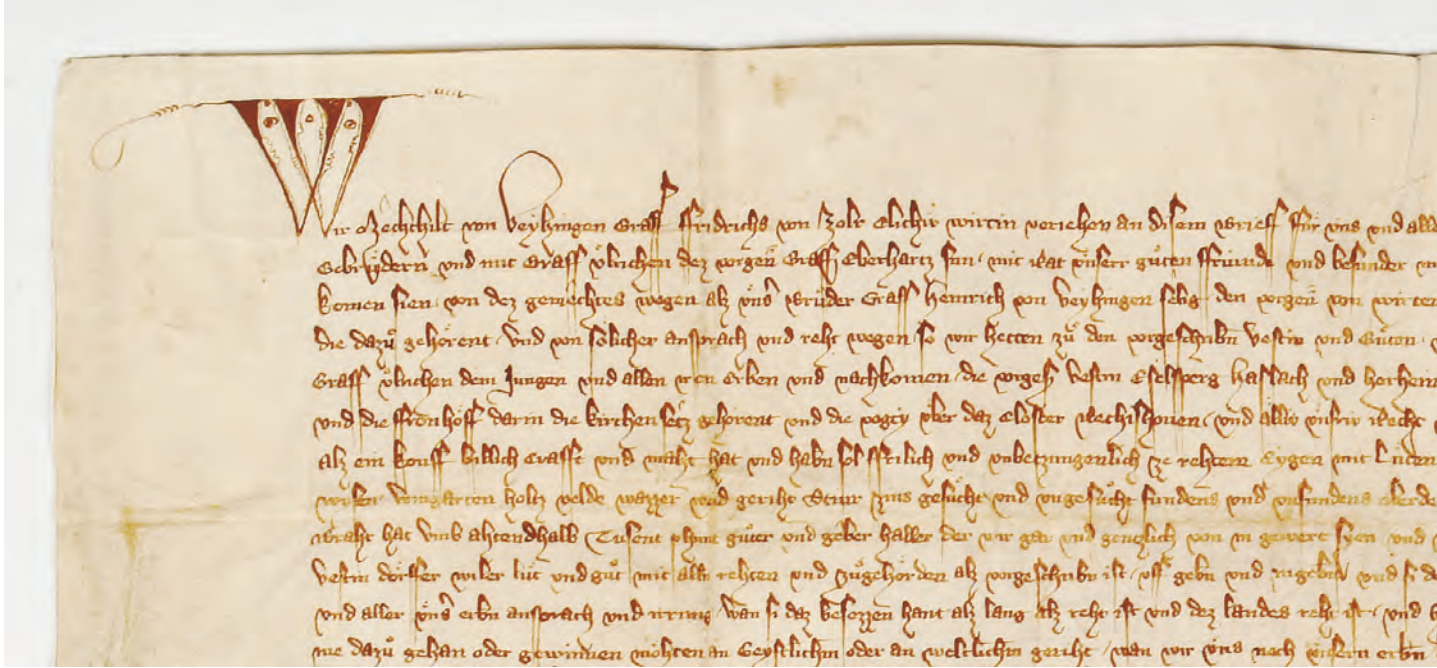 Wir Mechthilt von Veyhingen Graff Ffridrichs von Zolr Elichiv wirtin veriehen an disem Brieff Ffür vns vnd alle
Gebrüdern vnd mit Graff vlrichen dez vorgen Graff Eberhartz sun mit Rat vnserr güten Ffriunde vnd besunder
komen sien von dez gemechtes wegen alz vns Brüder Graff Heinrich von Veyhingen selig den vorgen von wirten
die dazů gehörent Vnd von sölicher ansprach vnd reht wegen so wir hetten zů den vorgeschribn Vestin vnd Güten
Graff vlrichen dem Jungen vnd allen iren Erben vnd nachkomen die vorges Vestin Eselsperg Haslach vnd horhein
vnd die Ffronhöff darin die kirchensetz gehörent vnd die vogty vber daz Closter Rechishouen vnd alliv vnsriv Recht
alz ein kouff billich Crafft vnd maht hat vnd habn sol Ffrilich vnd vnbetzungenlich ze rehtem Eygen mit Lüten
wysen Bomgarten holtz velde wazzer vnd geriht Stiur zins gesücht vnd vngesücht fundens vnd vnfundens
Braht hat Vmb ahtendhalb Tusent phunt güter vnd geber haller der wir gar vnd gentzlich von in gewert syen vnd
Vestin dörffer wiler lüt vnd güt mit alln rehten vnd zügehörden alz vorgeschribn ist vff gebn vnd ingebn vnd si
vnd aller vns erbn ansprach vnd irrung wan si daz besezzen hant alz lang alz reht ist vnd dez landes reht ist vnd
nie dazů gehan oder gewinnen möhten an Geystlichm oder an weltlichm geriht wan wir vns noch vnsern erbn